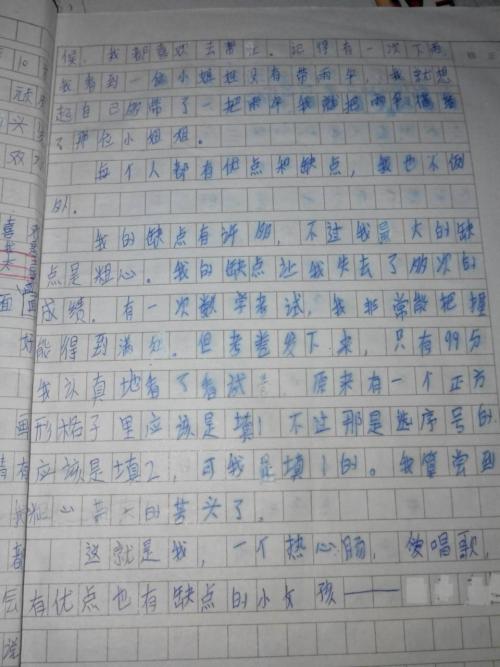 候，我都喜欢去帮忙。记得有一次下雨
我看到一位小姐姐只有带雨伞，我就想
起自己多带了一把雨伞我就把雨伞借给
了那位小姐姐。
每个人都有优点和缺点，我也不例
外。
我的缺点有许多，不过我最大的缺
点是粗心。我的缺点让我失去了多次的
成绩。有一次数学考试，我非常能把握
能得到满分。但考卷发下来，只有99分
我认真地看了看试卷原来有一个正方
形格子里应该是填1不过那是选序号的
有应该是填2，可我是填1的。我算尝到
心的苦头了。
这就是我，一个热心肠，使唱歌，
有优点也有缺点的小女孩——